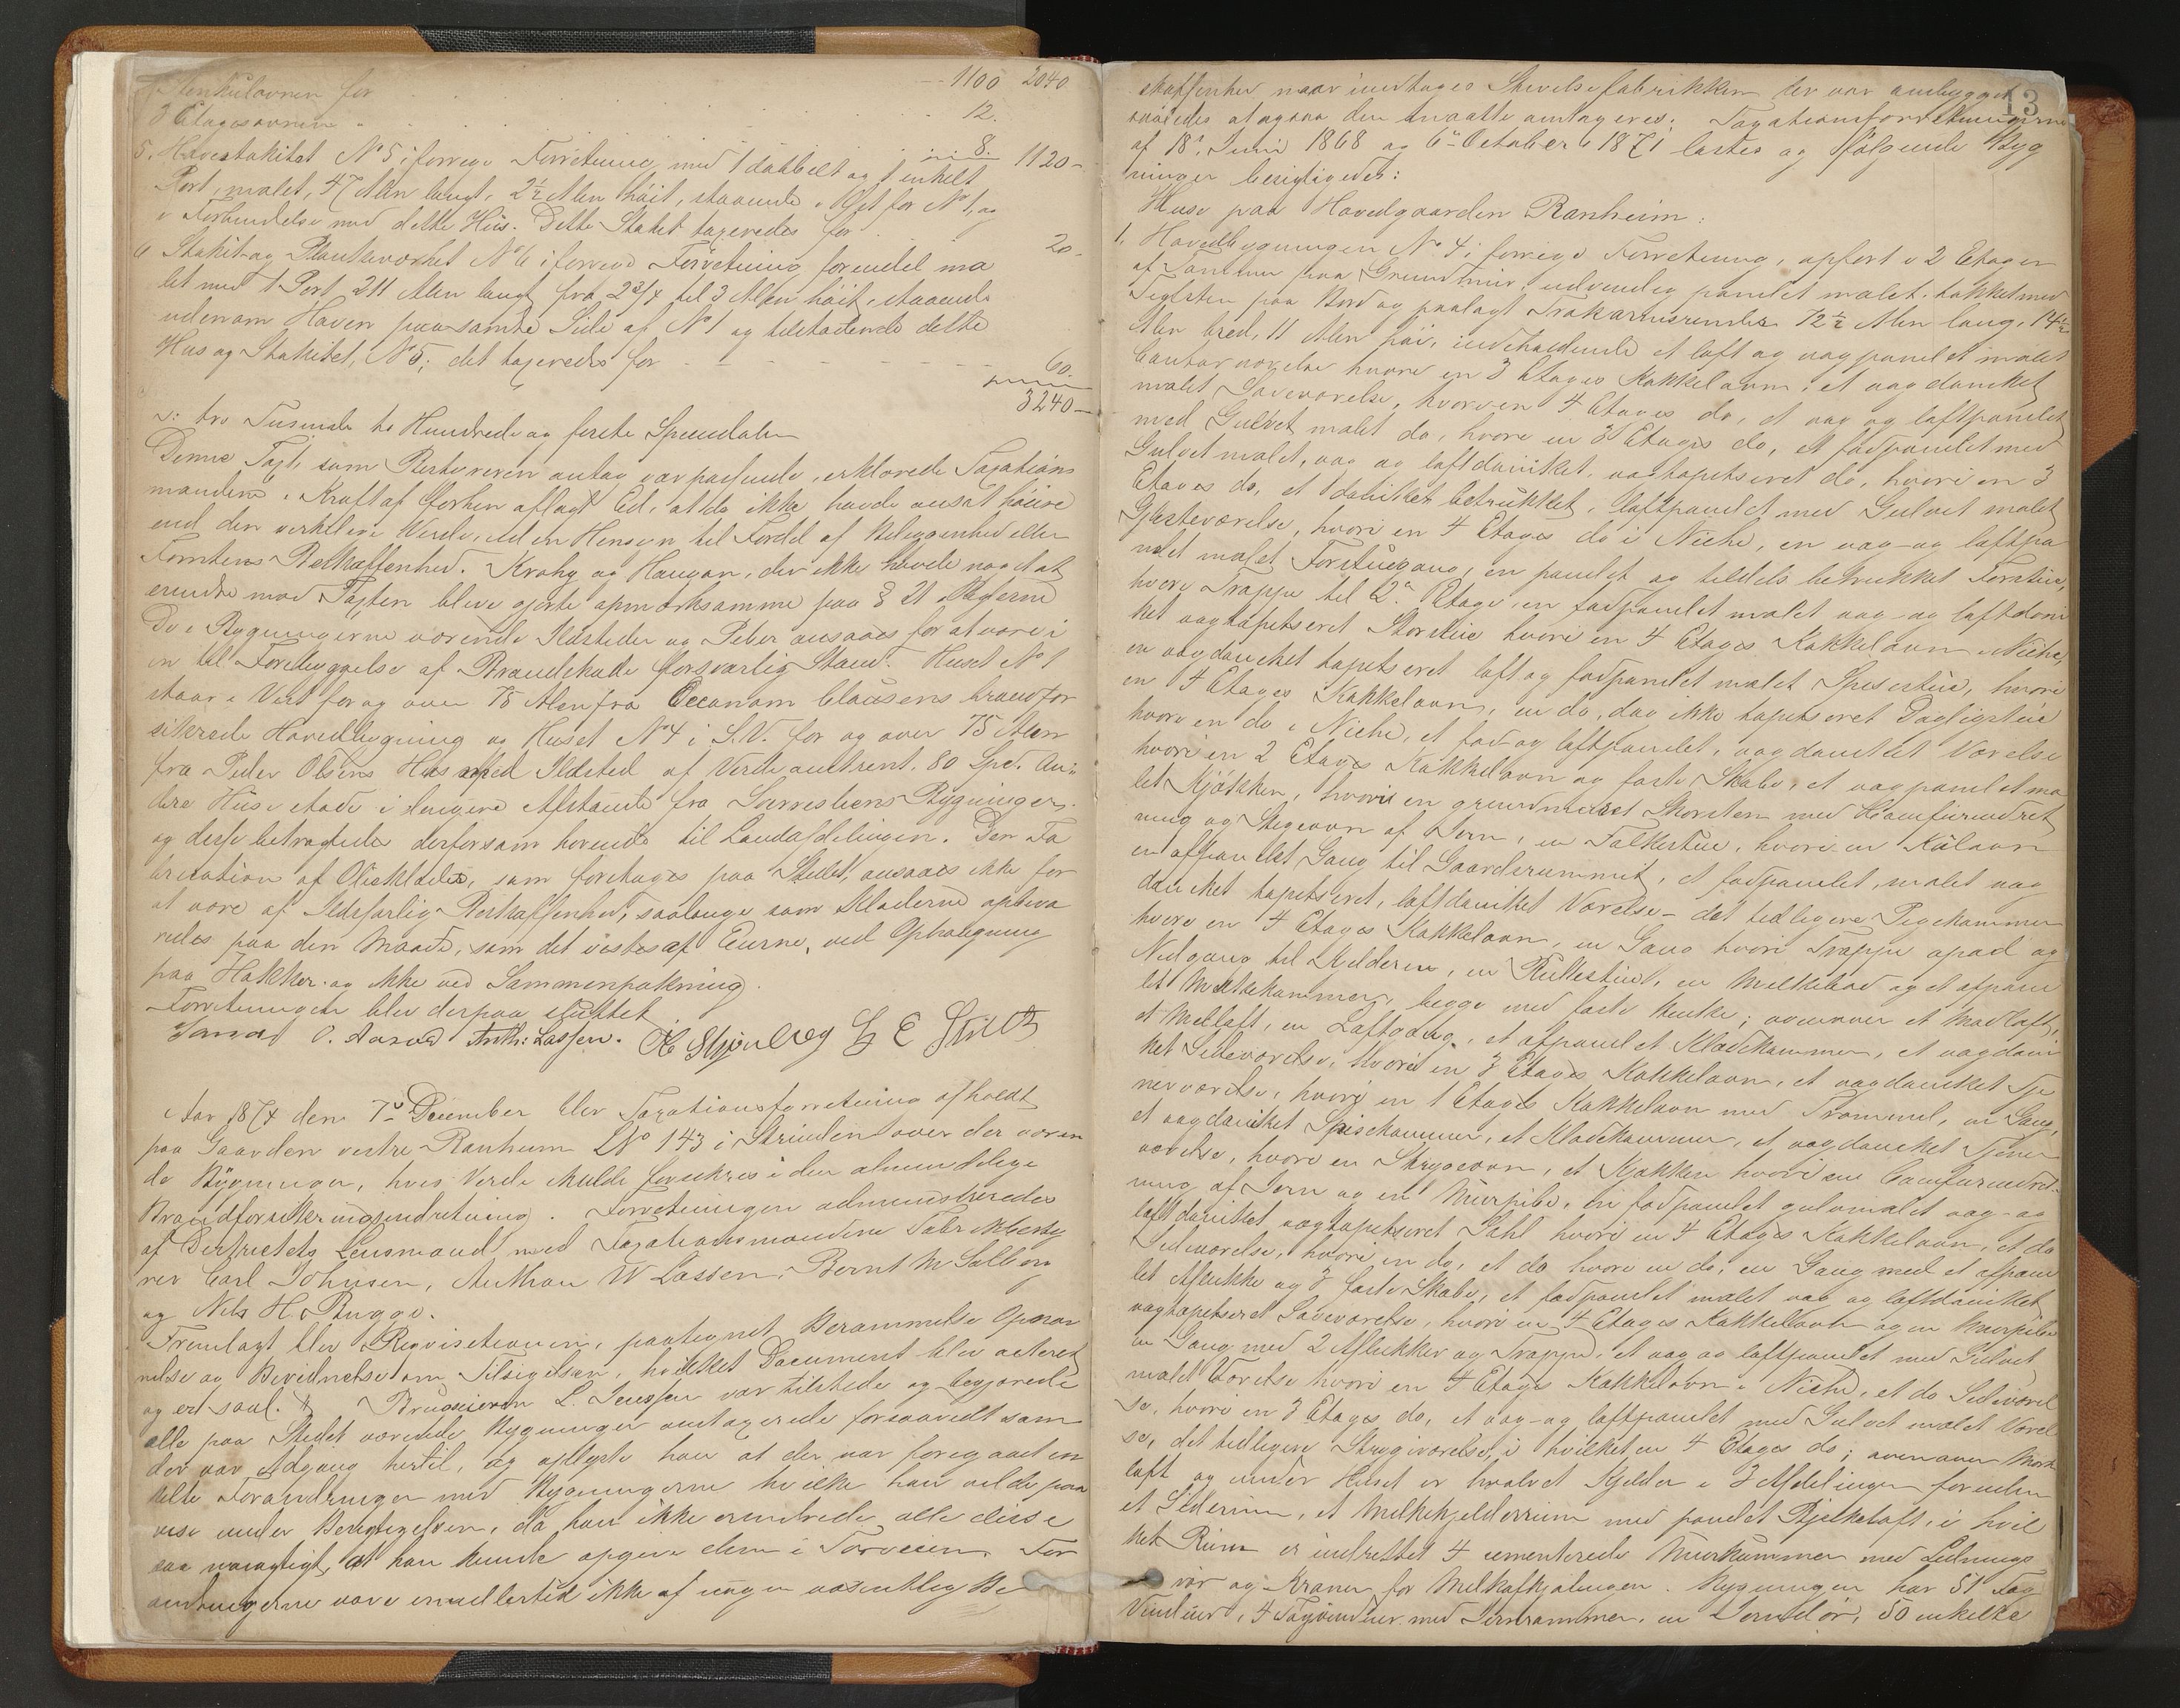 Stenkulovnen for . . . . . . . . 1100 2040
3 Etagesovnen . . . . . . . . 12.
8.
5. Havestakitet No 5 i forrige Forretning med 1 dobbelt og 1 enkelt 1120-
Port, malet, 47 Alen langt, 2½ Alen høit, staaende i Øst for No 1, og
i Forbindelse med dette Hus. Dette Stakit taxeredes for . . 20-
6 Stakit og Plankeværket No 6 i forrige Forretning, forendel ma
let med 1 Port 211 Alen langt fra 2 3/4 til 3 Alen høit, staaende
udenom Haven paa samme Side af No 1 og tilstødende dette
Hus og Stakitet, No 5; det taxeredes for - - - - 60.
3240-
er: tre Tusinde to Hundrede og firti Speciedaler
Denne Taxt, som Bestyreren antog var passende, erklærede Taxations
mændene i Kraft af forhen aflagt Ed, at de ikke havde ansat høiere
end den virkelige Værdi, uden Hensyn til Fordel af Beliggenhed eller
Tomtens Beskaffenhed. Krohg og Haugan, der ikke havde noget at
erindre mod Taxten bleve gjorte opmærksomme paa § 21 Bøderne
De i Bygningerne værende Ildsteder og Piber ansaaes for at være i
en til Forebyggelse af Brandskade forsvarlig Stand. Huset No 1
staar i Vest for og over 75 Alen fra Oeconom Clausens brandfor
sikrede Hovedbygning og Huset No 4 i S.V. for og over 75 Alen
fra Peder Olsens Hus med Ildsted af Værdi omtrent 80 Spd. An-
dre Huse stode i længere Afstand fra Bygninger
og disse betragtedes derfor som hørende til Landafdelingen. Den Fa
brication af Olieklæder, som foretages paa Stedet, ansaaes ikke for
at være af Ildsfarlig Beskaffenhed, saalænge som Klæderne opbeva
redes paa den Maade, som det vistes af Eierne, ved Ophængning
paa Hakker og ikke ved Sammenpakning.
Forretningen blev derpaa sluttet
O. Aarva Anth: Lassen.
Aar 1874 den 7de December blev Taxationsforretning afholdt
paa Gaarden vestre Ranheim LNo 143 i Strinden over der væren
de Bygninger, hvis Værdi skulde forsikres i den almindelige
Brandforsikringsindretning. Forretningen administreredes
af Districtets Lensmand med Taxationsmændene Fabrikbesty
rer Carl Johnsen, Anthon W Lassen, Bernt M Solberg
og Nels H. Bugge.
Fremlagt blev Reqvisitionen, paategnet Berammelse Opnæv
nelse og Bevidnelse om Tilsigelsen, hvilket Document blev acteret
og er saal. L. Jenssen var tilstede og begjærede
alle paa Stedet værende Bygninger omtaxerede forsaavidt som
der var Adgang hertil, og oplyste han at der var foregaaet en
kelte Forandringer med Bygningerne hvilke han vilde paa
vise under Besigtigelsen, da han ikke erindrede alle disse
saa nøiagtigt, at han kunde opgive dem i Forveien. For
andringerne vare imidlertid ikke af nogen væsentlig Be
13
skaffenhed naar undtages Stivelsefabrikken der var ombygget
saaledes at ogsaa den maatte omtaxeres. Taxationsforretningerne
af 18de Juni 1868 og 6te October 1871 læstes og følgende Byg
ninger besigtigedes:
Huse paa Hovedgaarden Ranheim:
1. Hovedbygningen No 4 i forrige Forretning, opført i 2 Etager
af Tømmer paa Grundmur, udvendig panelet malet, tækket med
Teglsten paa Bord og paalagt Trakarnisrender 72½ Alen lang, 14½
Alen bred, 11 Alen høi, indeholdende et loft og vægpanelet malet
Contorværelse hvori en 3 Etages Kakkelovn, et vægdansket
malet Soveværelse, hvori en 4 Etages do, et væg og loftpanelet
med Gulvet malet do, hvori en 3 Etages do, et fodpanelet med
Gulvet malet, væg og loftdansket, vægtapetseret do, hvori en 3
Etages do, et dansket betrukket, loftpanelet med Gulvet malet
Gjesteværelse, hvori en 4 Etages do i Niche, en væg- og loftpa
nelet malet Forstuegang, en panelet og tildels betrukket Forstue,
hvori Trappe til 2den Etage, en fodpanelet malet væg- og loftdan
sket vægtapetseret Storstue hvori en 4 Etages Kakkelovn i Niche,
en vægdansket tapetseret loft og fodpanelet malet Spisestue, hvori
en 4 Etages Kakkelovn, en do, dog ikke tapetseret Dagligstue
hvori en do i Niche, et fod og loftpanelet, vægdansket Værelse
hvori en 2 Etages Kakkelovn og faste Skabe, et vægpanelet ma
let Kjøkken, hvori en grundmuret Skorsten med Komfurindret
ning og Stegeovn af Jern, en Folkestue, hvori en Kulovn
en afpanelet Gang til Gaardsrummet, et fodpanelet, malet væg
dansket tapetseret, loftdansket Værelse - det tidligere Pigekammer
hvori en 4 Etages Kakkelovn, en Gang hvori Trappe opad og
Nedgang til Kjelderen, en Rullestue, en Melkebod og et afpane
let Melkekammer, begge med faste Bænke; ovenover et Madloft,
et Melloft, en Loftgang, et afpanelet Klædekammer, et vægdan
sket Sideværelse, hvori en 3 Etages Kakkelovn, et vægdansket Tje
nerværelse, hvori en 1 Etages Kakkelovn med Trommel, en Gang,
et vægdansket Spisekammer, et Klædekammer, et vægdansket Tjener
værelse, hvori en Strygeovn, et Kjøkken hvori en Comfurindret-
ning af Jern og en Muurpibe, en fodpanelet gulvmalet væg- og
loftdansket, vægtapetseret Sahl hvori en 4 Etages Kakkelovn, et do
Sideværelse, hvori en do, et do hvori en do, en Gang med et afpane
let Aflukke og 3 faste Skabe, et fodpanelet malet væg og loftdansket
vægtapetseret Soveværelse, hvori en 4 Etages Kakkelovn og en Muurpibe
en Gang med 2 Aflukker og Trappe, et væg og loftpanelet med Gulvet
malet Værelse hvori en 4 Etages Kakkelovn i Niche, et do Sideværel
se, hvori en 3 Etages do, et væg- og loftpanelet med Gulvet malet Værel
se, det tidligere Strygeværelse, i hvilket en 4 Etages do; ovenover Mørk
loft og under Huset er hvalvet Kjelder i 3 Afdelinger foruden
et Siderum, et Melkekjelderrum med panelet Bjelkeloft, i hvil
ket Rum er indrettet 4 cementerede Muurkummer med Lednings
rør og Kraner for Melkafkjølingen. Bygningen har 51 Fag
Vinduer, 4 Tagvinduer med Jernrammer, en Jerndør, 50 enkelte